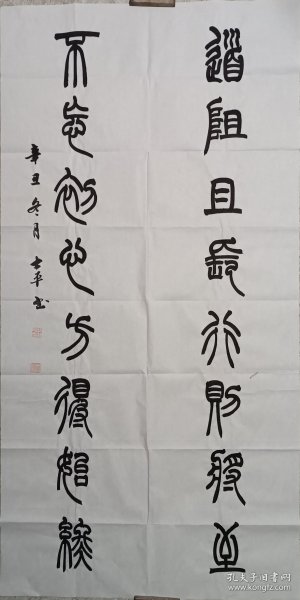 道阻且长行则将至
不忘初心方得始终
辛丑冬月 士平书
孔夫子旧书网